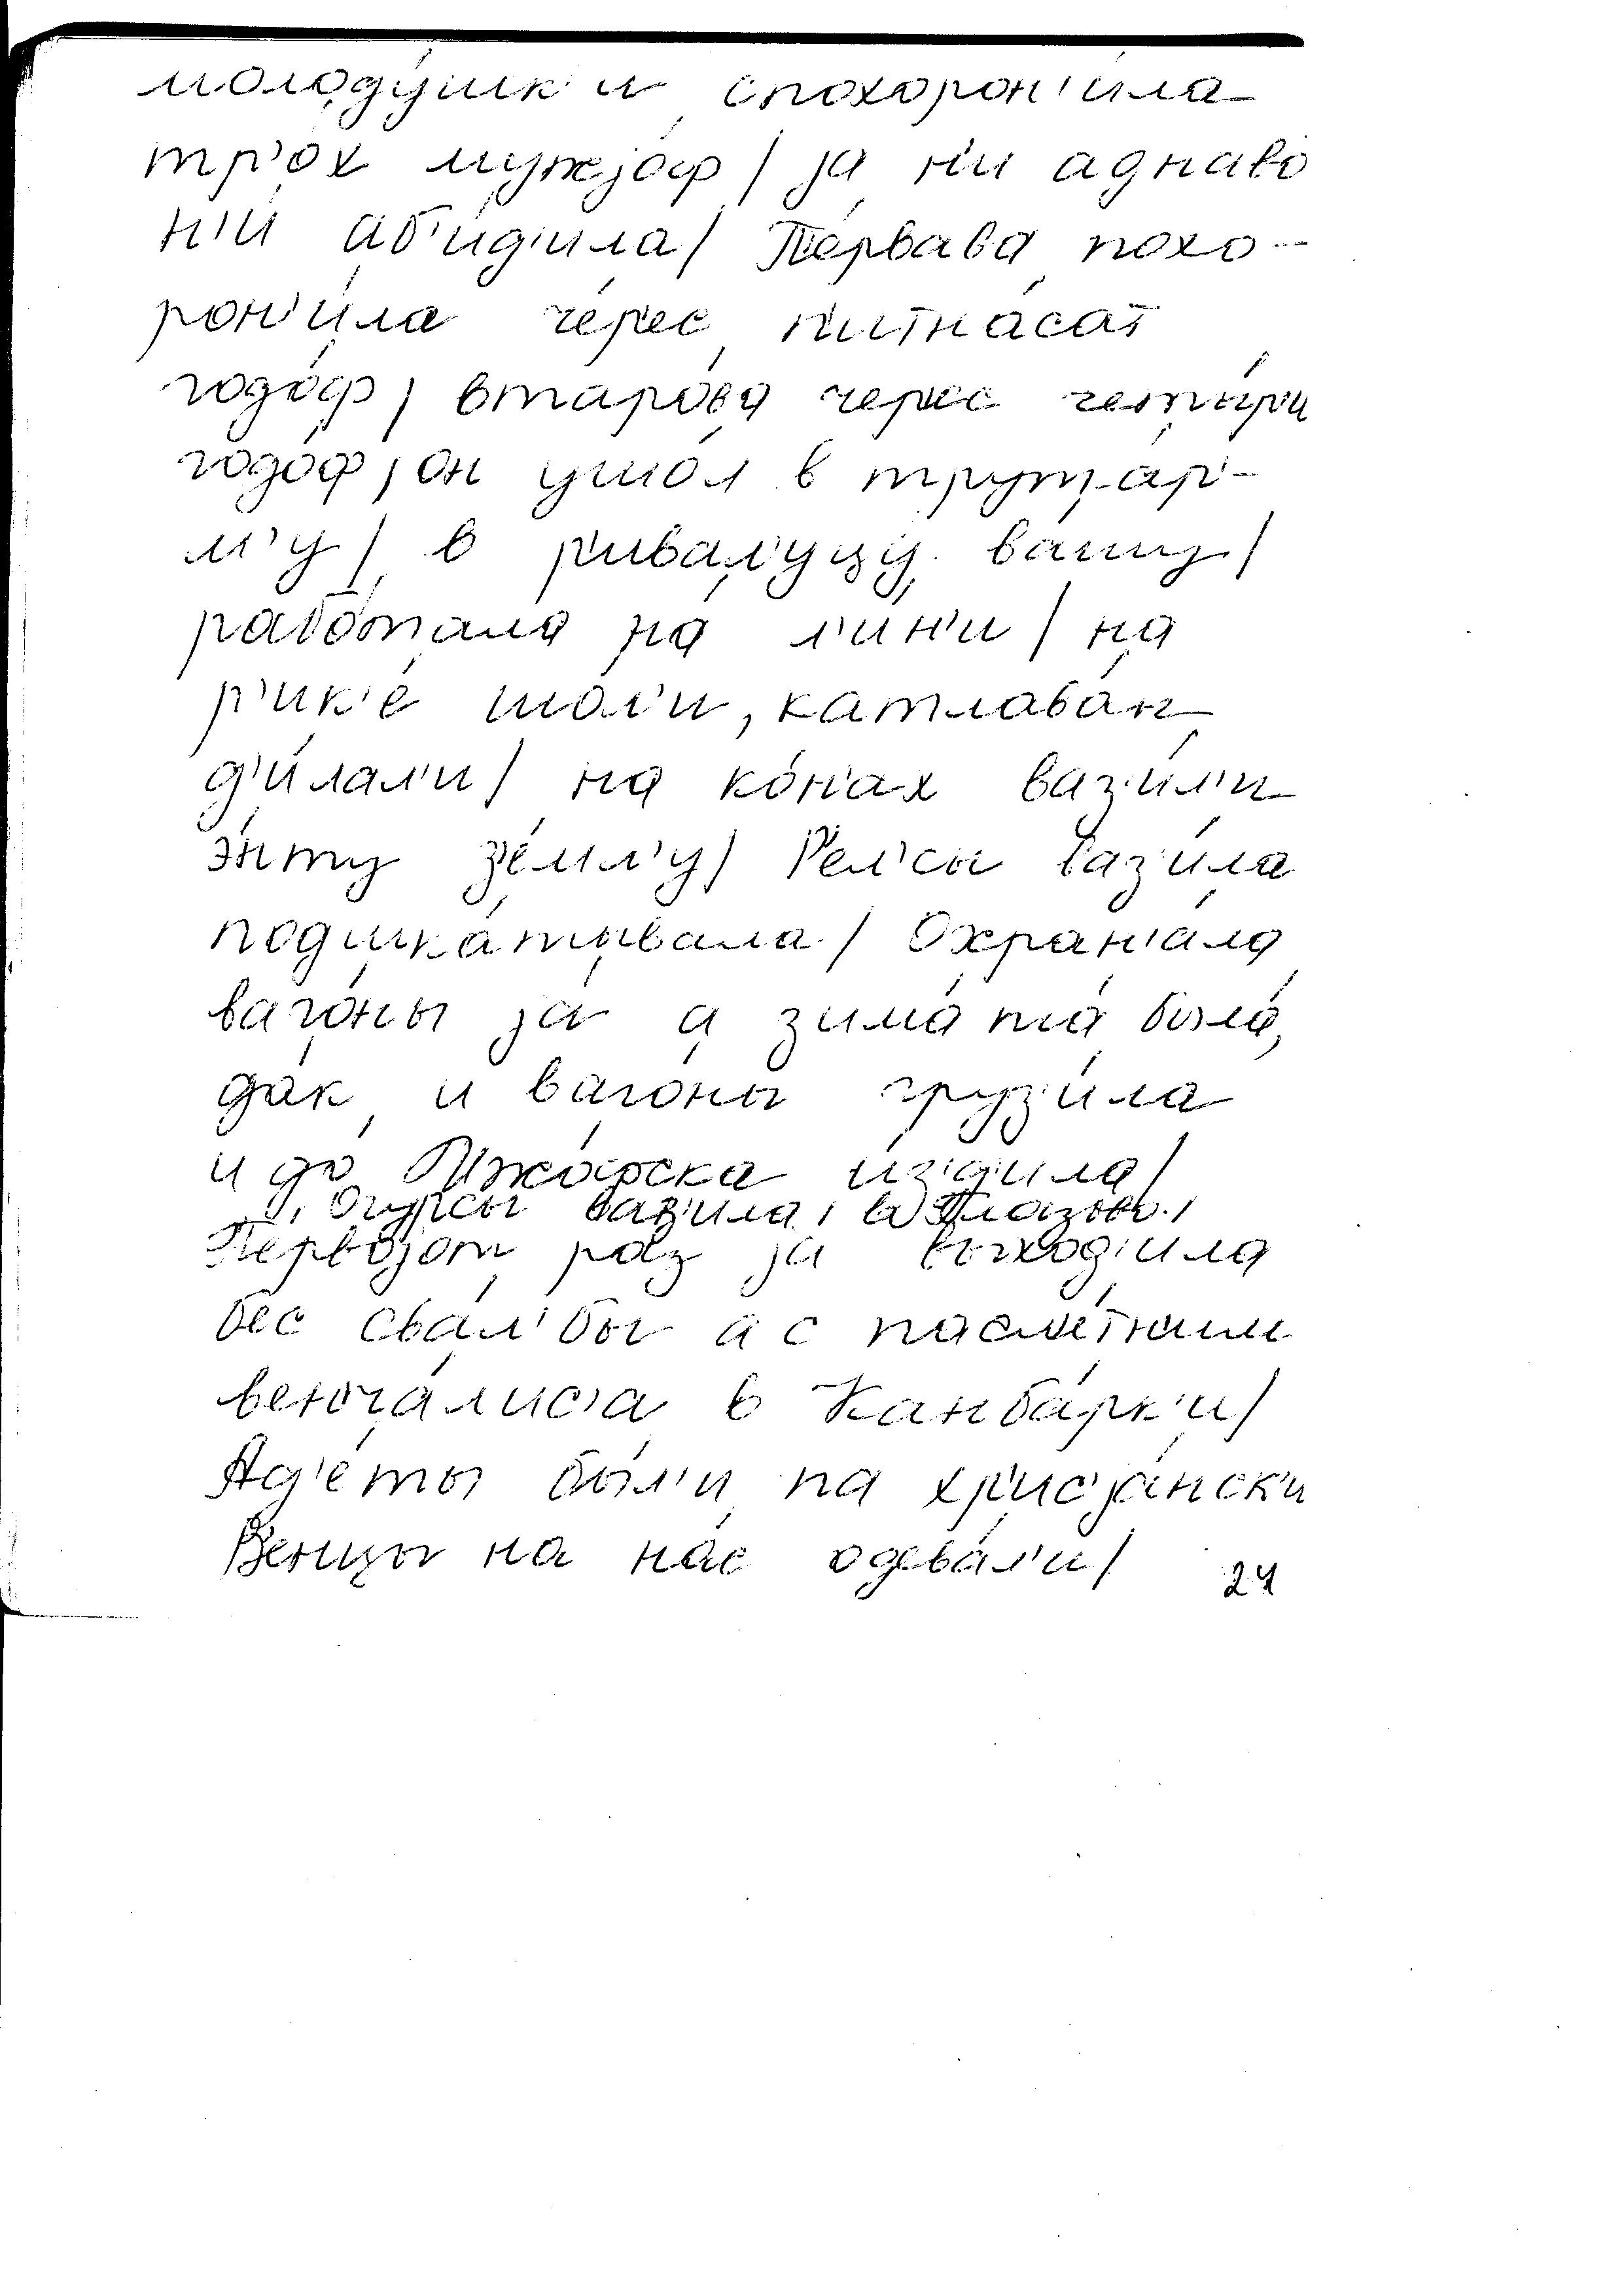 молоду́шк'и спохорон'и́ла
тр'ох мужjо́ф / jа н'и аднаво́
н'и аб'и́д'ила / Пе́рвава похо-
рон'и́ла че́р'ес п'итна́сат
годо́ф / втаро́ва черес четы́р'и
годо́ф / он ушо́л в трутар-
м'у / в р'ивал'у́цу вашу /
рабо́тала на л'и́н'и / на
р'ик'е́ шол'и, катлава́н
д'и́лал'и / на ко́н'ах ваз'и́л'и
э́нту зе́мл'у / Рел'сы ваз'и́ла
подшка́тывала / Охран'а́ла
ваго́ны jа а зима́ та была́,
дак и вагоны груз'и́ла
и до Ижо́фска из'д'ила /
Огурсы ваз'ила / в Глазов /
Первоjот раз jа выход'ила
бес свал'бы а с пасле́тним
венча́лис'а в Канба́рк'и /
Ад'е́ты бы́л'и па хр'исjа́нск'и
Венцы на на́с одева́л'и /
24